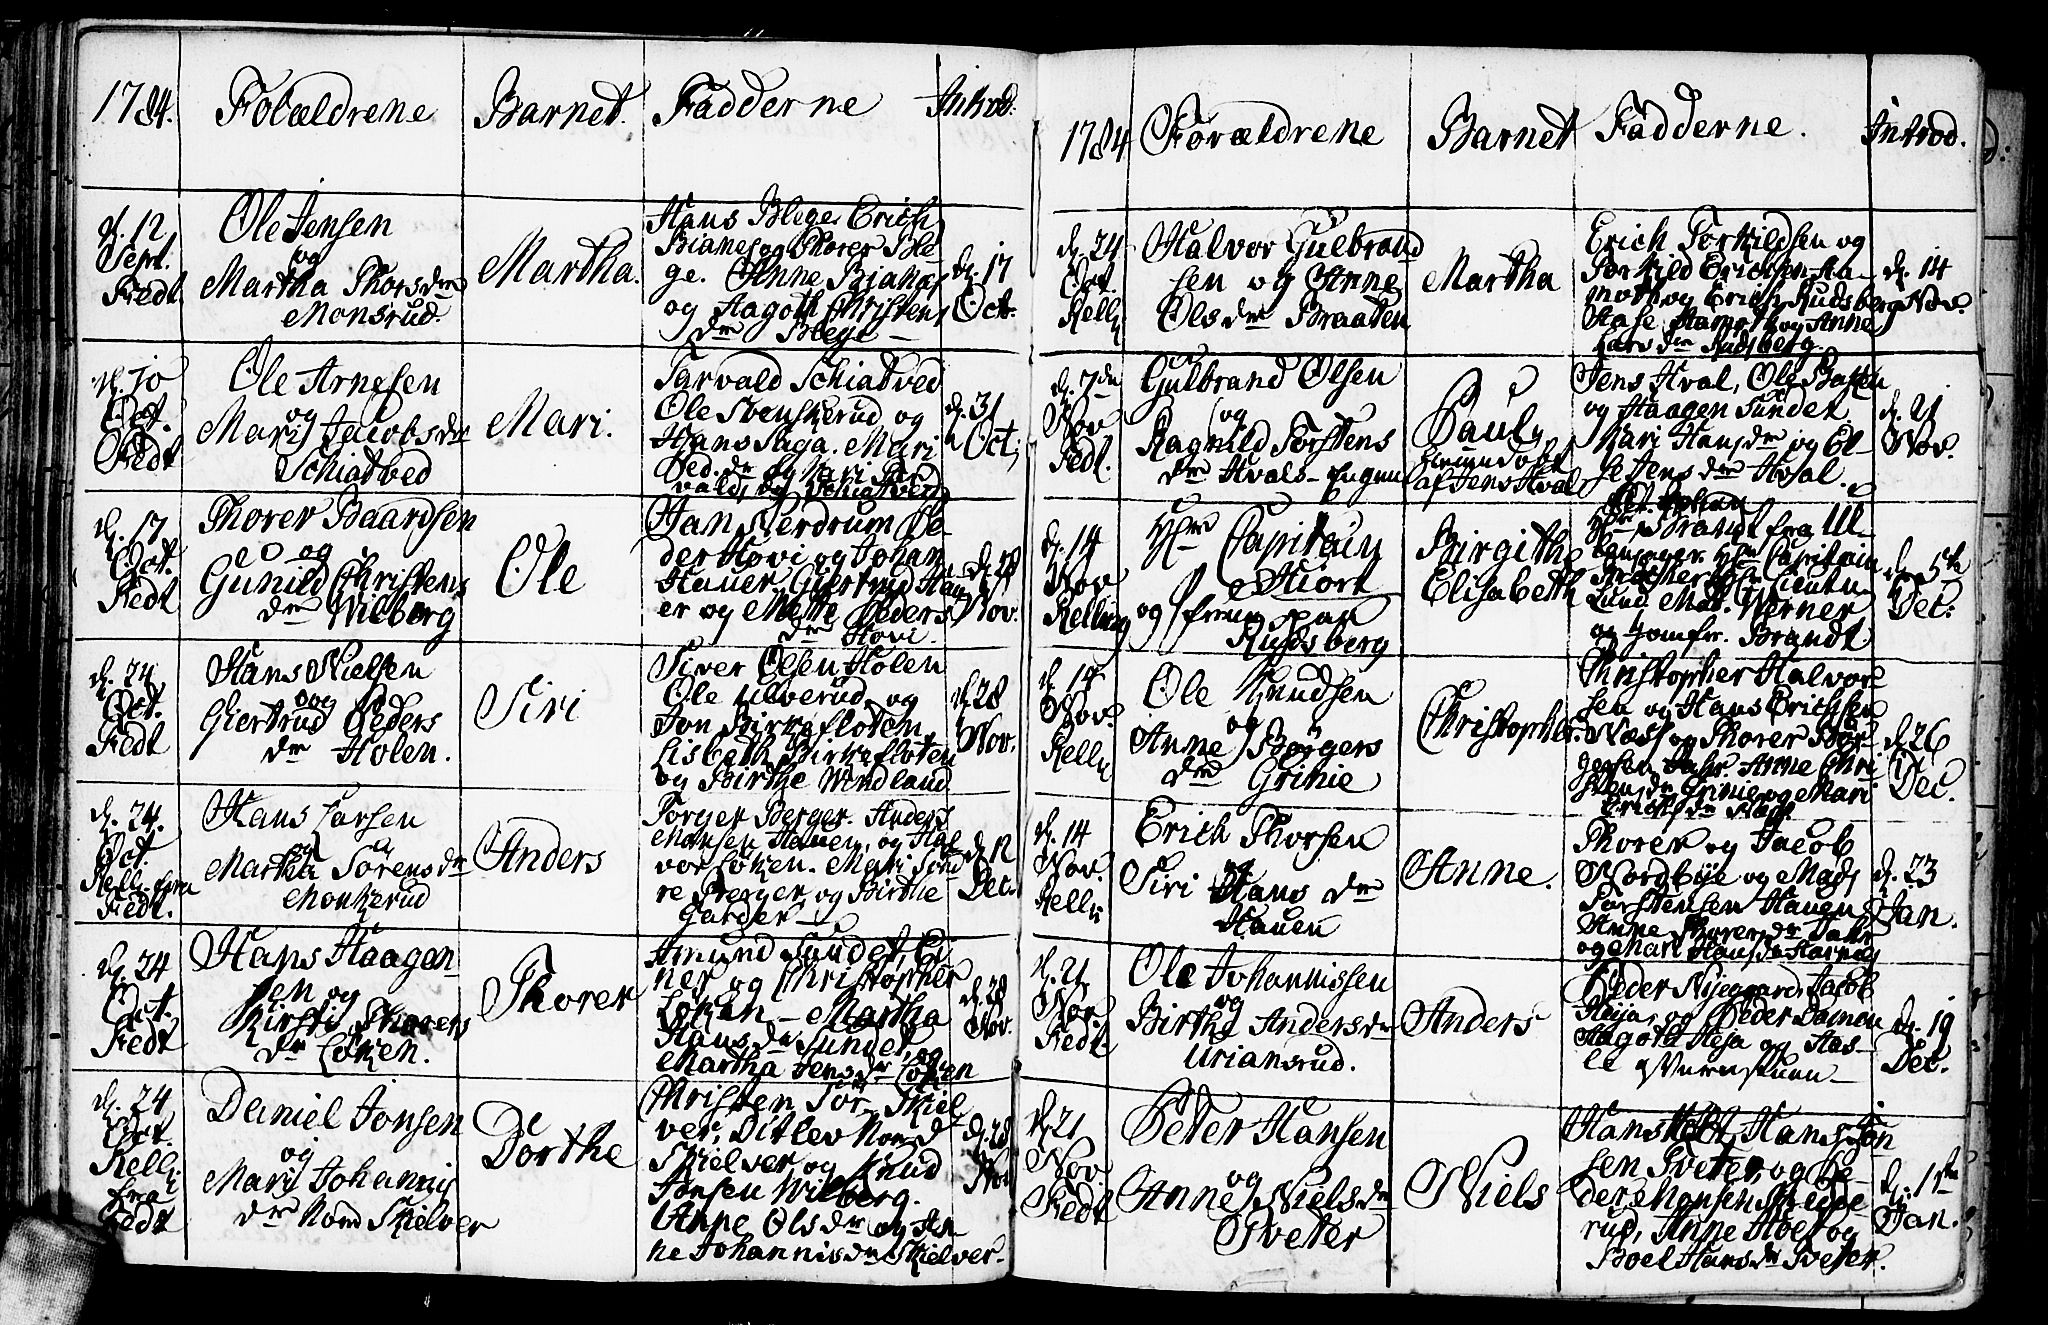 1784.
Forældrene
Barnet.
Fadderne
Introd.
d. 12
Sept.
Fedt
Ole Jensen
og
Martha Thorsdr
Monsrud.
Martha.
Hans Blege, Erich
Bianes og Thorer Ble-
ge. Anne Bjanes
og Aagoth Christens
dr Blege
d. 17
Oct.
d. 10
Oct.
Fedt
Ole Arnesen
og
Mari Jacobsdr
Schiatved
Mari.
Tarvald Schiatved
Ole Svenskerud og
Hans Saga. Mari
Ped. dr og Mari Tar
valds og Schiatved
d. 31
Oct.
d. 17
Oct.
Fedt
Thorer Baardsen
og
Gunild Christens
dr Wilberg
Ole
Han Kierdrum Pe-
der Hovi og Johan
Hauer, Giertrud Hau
er og Mette Peders
dr Hovi.
d. 28
Nov.
d. 24
Oct.
Fedt
Hans Nielsen
og
Giertrud Peders
dr Holen.
Siri
Siver Olsen Holen
Ole Ulverud, og
Jon Birkefloten
Lisbeth Birkefloten
og Birthe Windland
d. 28
Nov.
d. 24.
Oct.
Kelli. fra
Fedt.
Hans Larsen
og
Martha Sørensdr
Monkerud
Anders
Torger Berger. Anders
Monsen Hauen, og Hal
vor Løken. Mari Tord
re Berger, og Birthe
Garder
d. 12
Dec.
d. 24
Oct.
Fedt
Hans Haagen-
sen og
Kirsti Thorers
dr Løken.
Thorer
Amund Sundet, Ei
ner og Christopher
Løken – Martha
Hans dr Sundet, og
Martha Jens dr Løken
d. 28
Nov.
d. 24
Oct.
Kelli.
fra
Fedt
Daniel Jonsen
og
Mari Johannis
dr Nord Skielver
Dorthe
Christen Sør Skiel
ver, Ditlev Nord
Skielver og Knud
Jonsen Wilberg.
Anne Ols dr og An-
ne Johannisdr Skielver
d. 28
Nov
1784
Forældrene
Barnet
Fadderne.
Introd.
d. 24
Oct.
Kelli
Halvor Gulbrand
sen og Anne
Olsdr Braaten
Martha
Erich Torkildsen og
Torkild Erichsen Ha-
moth og Erich Rudsberg
Aase Hamoth og Anne
Lars dr Rudsberg.
d. 14
Nov.
d. 7de
Nov
Fedt.
Gulbrand Olsen
og
Ragnild Torstens
dr Hvals-Engen
Paul
af Jens Hval
Jens Hval, Ole Basten
og Haagen Sundet
Mari Hansdr og El-
se Jens dr Hval.
d. 21
Nov.
d. 14
Nov
Kelling
Hr Capitain
Hiort
og Frue paa
Rudsberg
Birgithe
Elisabeth
Brandt fra Ul-
Hr Capitain
Lund, Mad. Werner
og Jomfr. Brandt
den 5te
Dec:
d. 14
Nov.
Kelli
Ole Knudsen
og
Anne Børgers
dr Grinie
Christopher.
Christopher Halvor-
sen og Hans Erichsen
Næss og Thorer Bør-
gersen Anne Chri
stens dr Grinie og Mari
Erichs dr Næss
d. 26
Dec.
d. 14
Nov.
Kelli
Erich Thorsen
og
Siri Hans dr
Hauen
Anne.
Thorer og Jacob
Nordbye og Mads
Torstensen Hauen
Anne Thorer dr
og Mari Hansdr Harnæs
d. 23
Jan.
d. 21
Nov
Fedt
Ole Johannissen
og
Birthe Andersdr
Uriansrud.
Anders
Peder Nyegaard, Jacob
Heja, og Peder Damen
Aagoth Heja og Aas-
le
d. 19
Dec.
d. 21
Nov
Fedt
Peter Hansen
og
Anne Nielsdr
Tveter
Niels
Hans Holt, Hans Jon
sen Tveter, og Pe-
der Monsen Skedse
rud, Anne Hoel og
Boel Hans dr Tveter.
d. 1ste
Jan.